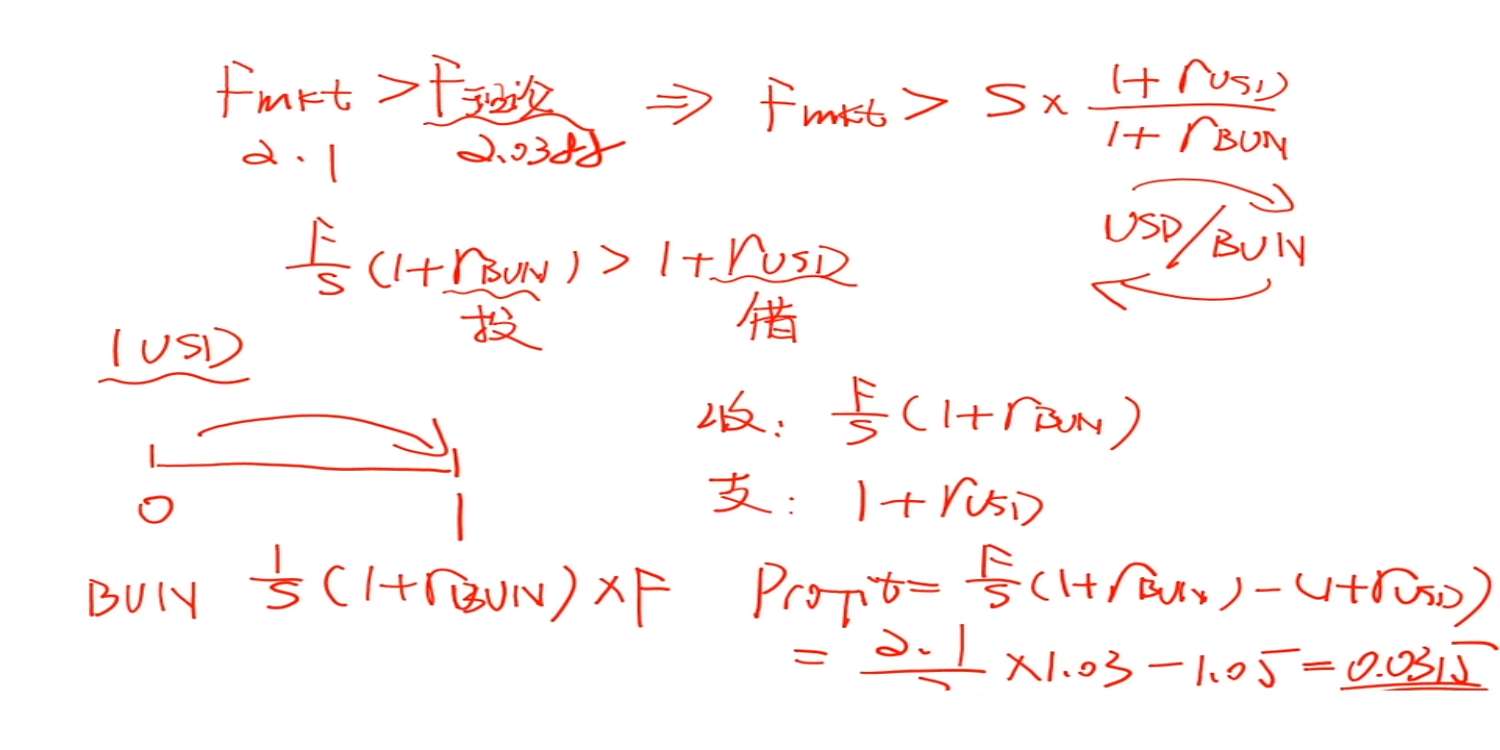 Fmkt > F理论 ⇒ Fmkt > S × (1 + rUSD) / (1 + rBUN)
2.1 2.0388
USD/BUN
F/S (1 + rBUN) > 1 + rUSD
投 借
1 USD
收: F/S (1 + rBUN)
0 1
支: 1 + rUSD
BUN 1/S (1 + rBUN) × F
Profit = F/S (1 + rBUN) - (1 + rUSD)
= 2.1/2 × 1.03 - 1.05 = 0.0315